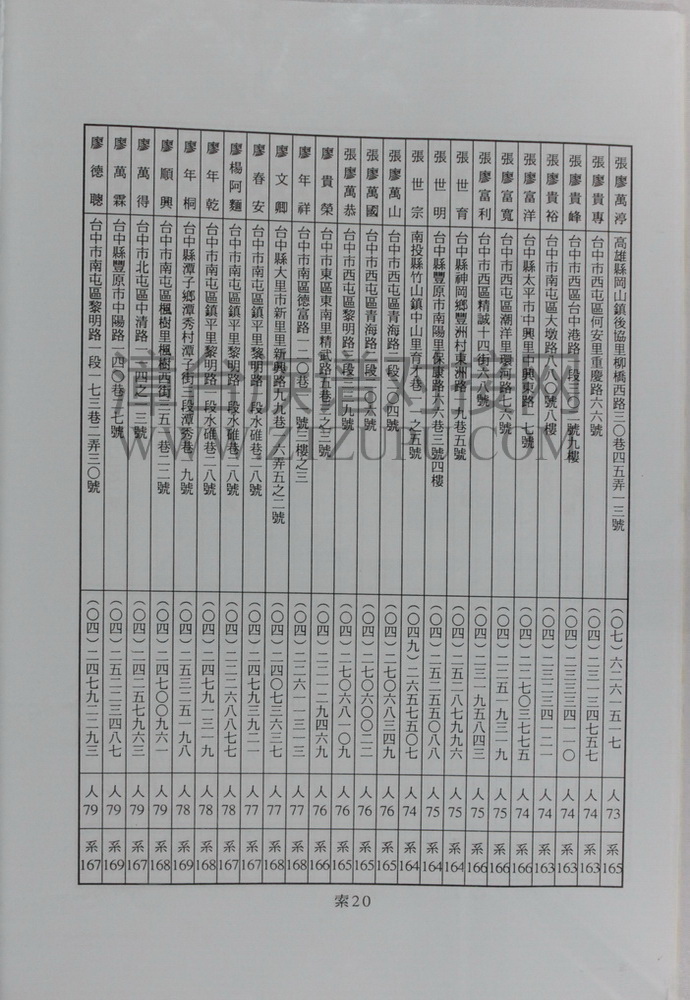 張廖萬淳 高雄縣岡山鎮後協里柳橋西路三○巷四五弄一三號 (○七)六二六一五一七 人73 系165
張廖貴專 台中市西屯區何安里重慶路六六號 (○四)二三一三四七五七 人74 系163
張廖貴峰 台中市西區台中港路一段 號九樓 (○四)二三三三四一一○ 人74 系163
張廖貴裕 台中市南屯區大墩路八八○號八樓 (○四)二三三三四一二一 人74 系163
張廖富洋 台中縣太平市中興里中興東路一七號 (○四)二二七○三七七五 人74 系164
張廖富寬 台中市西屯區潮洋里環河路七六號 (○四)二二五一九三一九 人75 系166
張廖富利 台中市西區精誠十四街六八號 (○四)二三一九五八四三 人75 系166
張世育 台中縣神岡鄉豐洲村東洲路一九巷五號 (○四)二五二八七九九六 人75 系164
張世明 台中縣豐原市南陽里保東路六六巷三號四樓 (○四)二五二五五○八八 人75 系164
張世宗 南投縣竹山鎮中山里育才巷一一之五號 (○四九)二六五七五○七 人74 系164
張廖萬山 台中市西屯區青海路一段一○四號 (○四)二七○六八三四九 人76 系165
張廖萬國 台中市西屯區青海路一段一○六號 (○四)二七○六○○二二 人76 系165
張廖萬恭 台中市西屯區黎明路三段三一九號 (○四)二七○六八一○九 人76 系165
廖貴榮 台中市東區東南里精武路五巷三之三號 (○四)二二一二九四六九 人76 系166
廖年祥 台中市南區德富路一二○巷 號三樓之三 (○四)二二六一一三一三 人77 系168
廖文卿 台中縣大里市新里里新興路九九巷二六弄五之二號 (○四)二四○七三六三七 人77 系168
廖春安 台中市南屯區鎮平里黎明路一段水碓巷二八號 (○四)二四七九三九二一 人77 系167
廖楊阿麵 台中市南屯區鎮平里黎明路一段水碓巷二八號 (○四)二二二六八八七七 人78 系167
廖年乾 台中市南屯區鎮平里黎明路一段水碓巷二八號 (○四)二四七九一三一九 人78 系168
廖年桐 台中縣潭子鄉潭秀村潭子街三段潭秀巷一九號 (○四)二五三二五一九八 人78 系169
廖順興 台中市南屯區楓樹里楓樹西街三五一巷二二號 (○四)二四七○○九六一 人79 系168
廖萬得 台中市北屯區中清路一四之一三號 (○四)二四二五七九六三 人79 系167
廖萬霖 台中縣豐原市中陽路一四○巷二七號 (○四)二五二二三四八七 人79 系169
廖德聰 台中市南屯區黎明路一段一七三巷二弄三○號 (○四)二四七九二二九三 人79 系167
索20